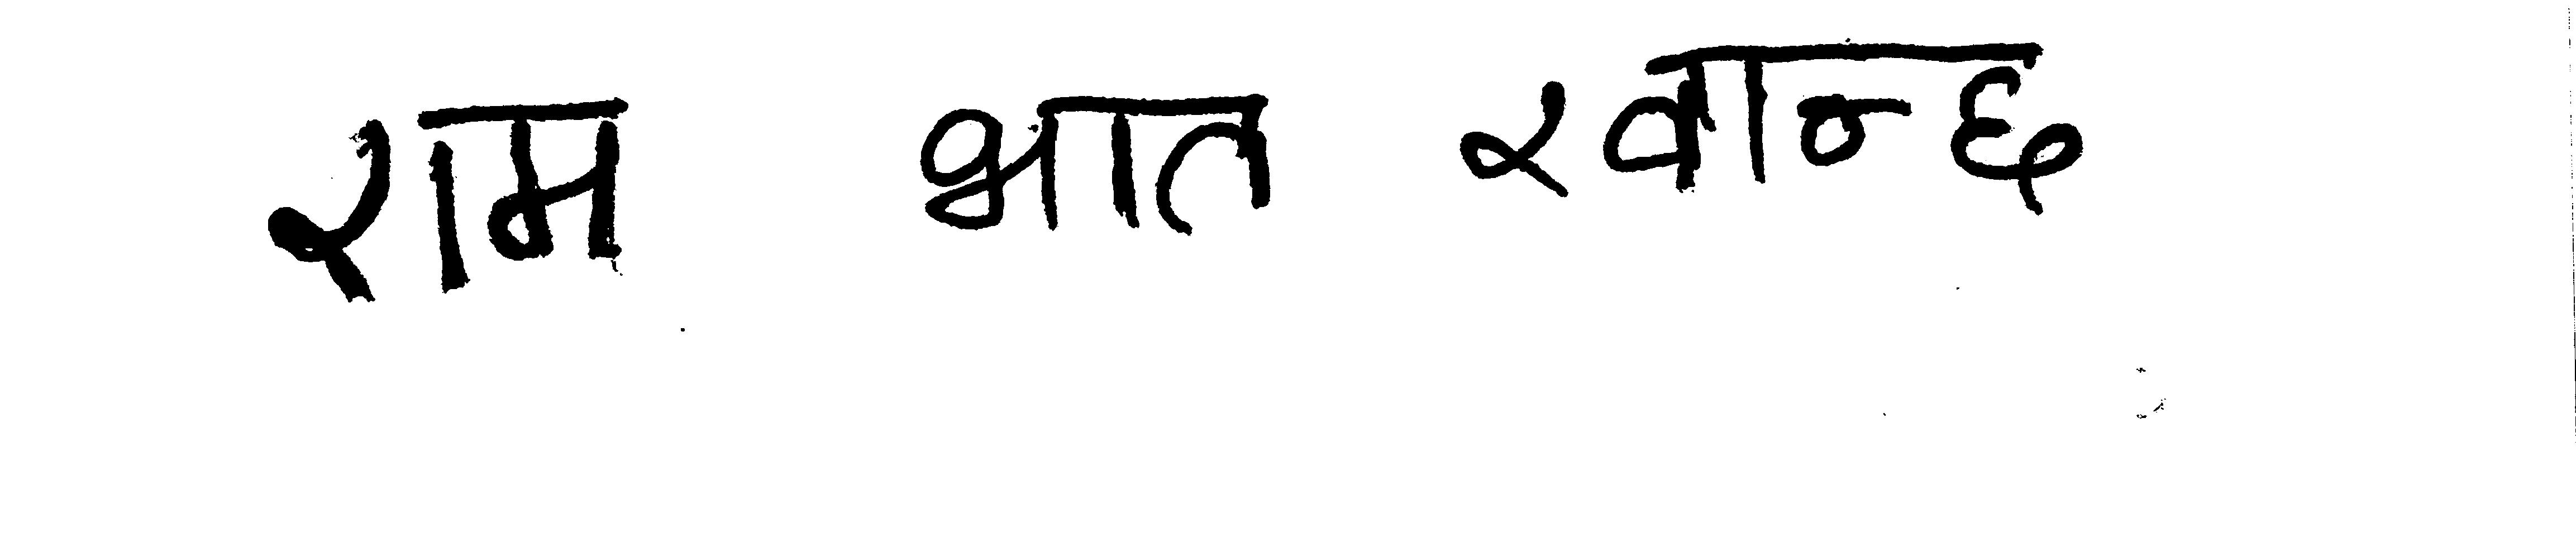 राम भात खान्छ